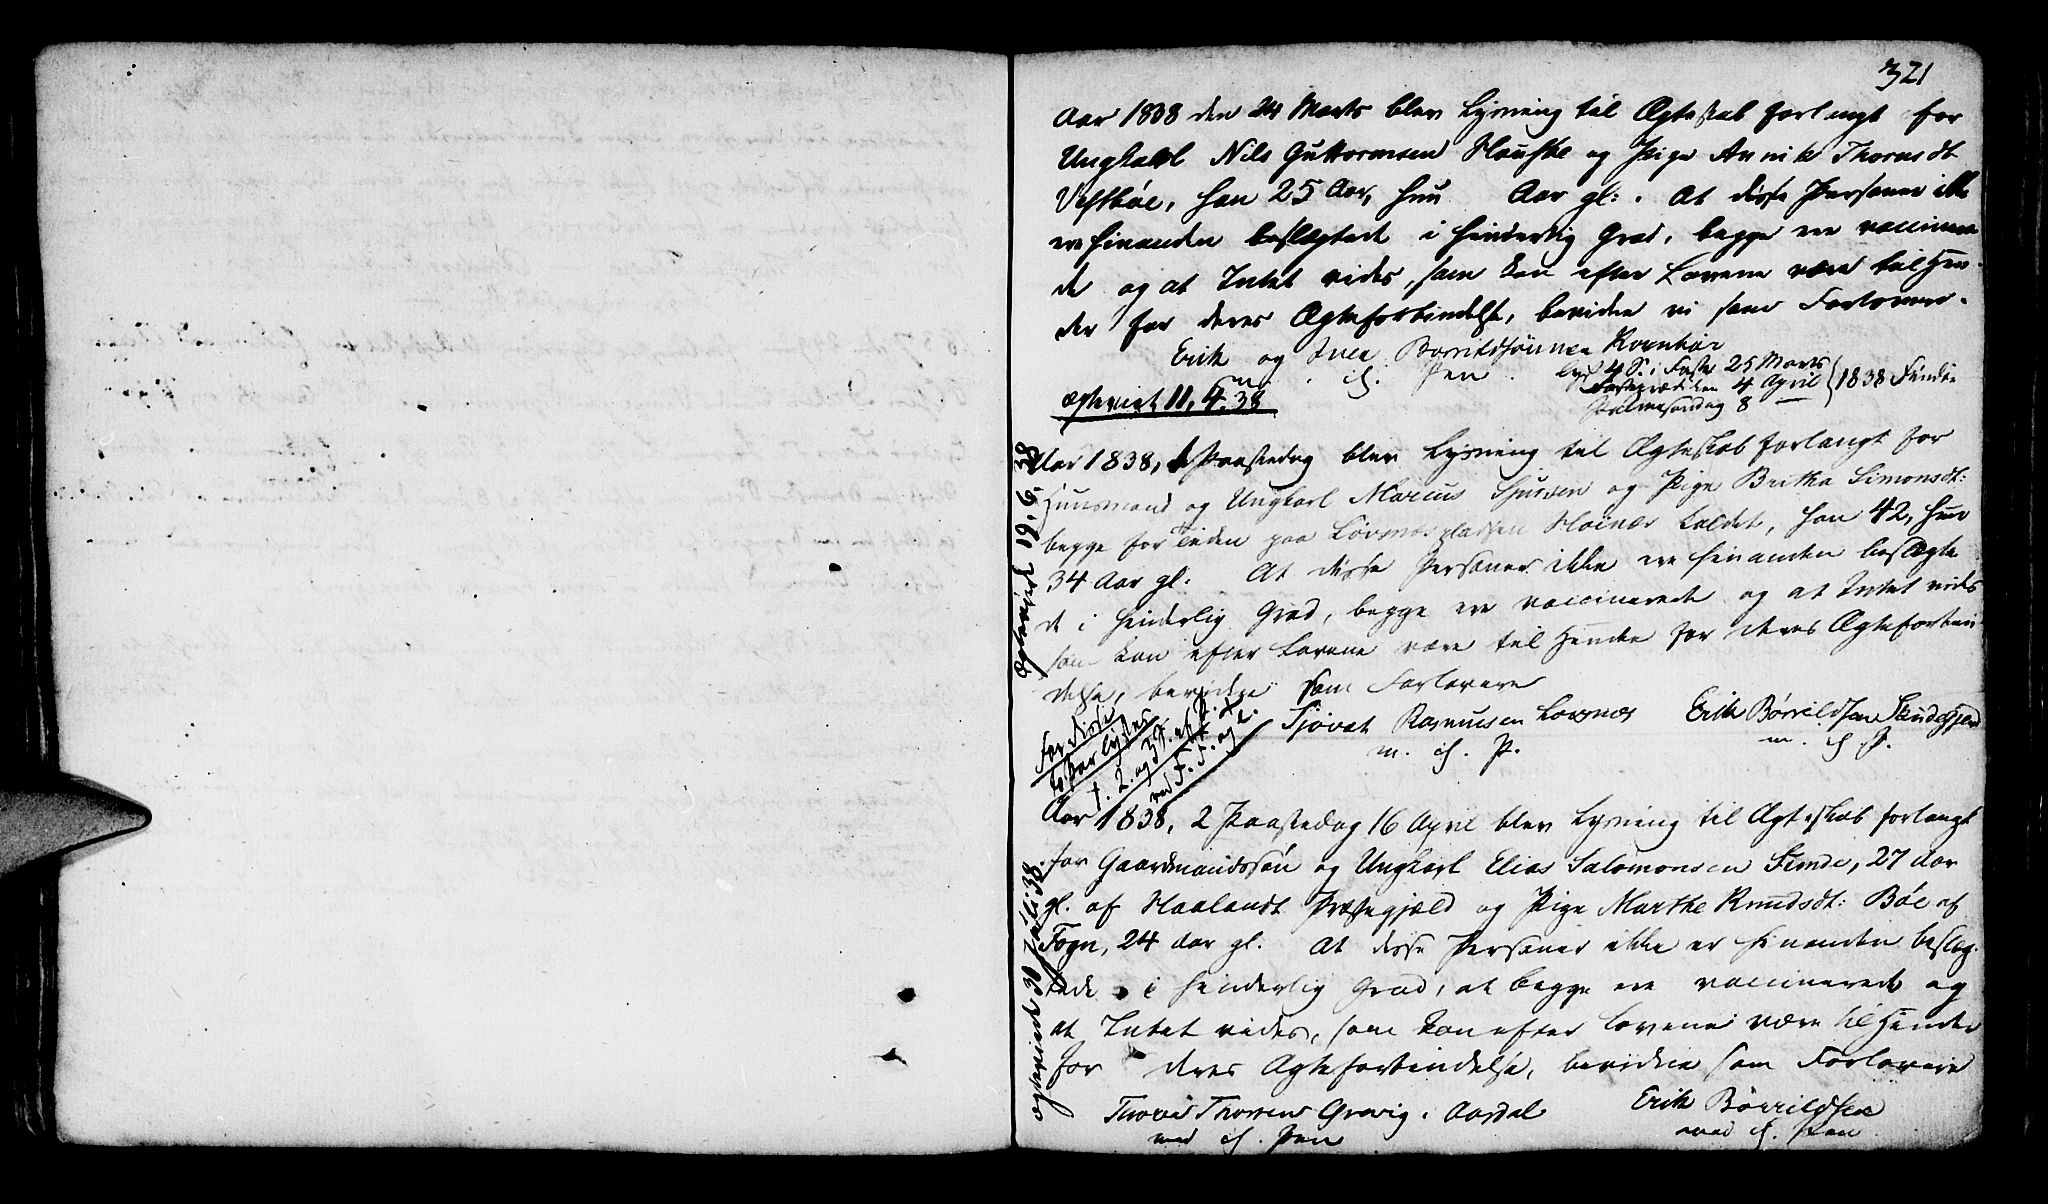 321
Aar 1838 den 24 Marts blev Lysning til Ægteskab forlangt for
Ungkarl Nils Guttormsen Hauske og Pige Annik Thorsdt
Vestbøe, han 25 Aar, hun Aar gl: . At disse Personer ikke
ere hinanden beslægtede i hinderlig Grad, begge ere vaccinere
de og at Intet vides, som kan efter Lovene være til Hin-
der for deres Ægteforbindelse, bevidne vi som Forlovere.
Erik og Iver Borrildsønner
m. i. Pen.
4 S. i Faste 25 Marts
4 April
Palmesøndag 8
1838 Findøe
ægteviet 11, 4. 38
Aar 1838, 1 Paaskedag blev Lysning til Ægteskab forlangt for
Huusmand og Ungkarl Marcus Sjursen og Pige Britha Simonsdt:
begge for Tiden paa Løvsnæs pladsen Høinæs kaldet, han 42, hun
34 Aar gl: At disse Personer ikke ere hinanden beslægte
de i hinderlig Grad, begge ere vaccinerede og at Intet vides
som kan efter Lovene være til Hinder for deres Ægteforbin
delse, bevidne som Forlovere
Sjovat Rasmusen Lovsnæs
m. i. P.
Erik Børrildsen
m. i P.
Ægteviet 19. 6. 38
for disse
to Par lyses
1. 2. og 3
Aar 1838, 2 Paaskedag 16 April blev Lysning til Ægteskab forlangt
for Gaardmandssøn og Ungkarl Elias Salomonsen Simde, 27 Aar
gl. af Haalandt Præstegjæld og Pige Marthe Knudsdt: Bøe af
Fogn, 24 Aar gl. At disse Personer ikke er hinanden beslæg-
tede i hinderlig Grad, at begge ere vaccinerede og
at Intet vides, som kan efter Lovene være til Hinder
for deres Ægteforbindelse, bevidne som Forlovere
Thorsen Grovig . Aardal
med i. Pen
Erik Børrildsen
med i. Pen
ægteviede 30 Juli 38.